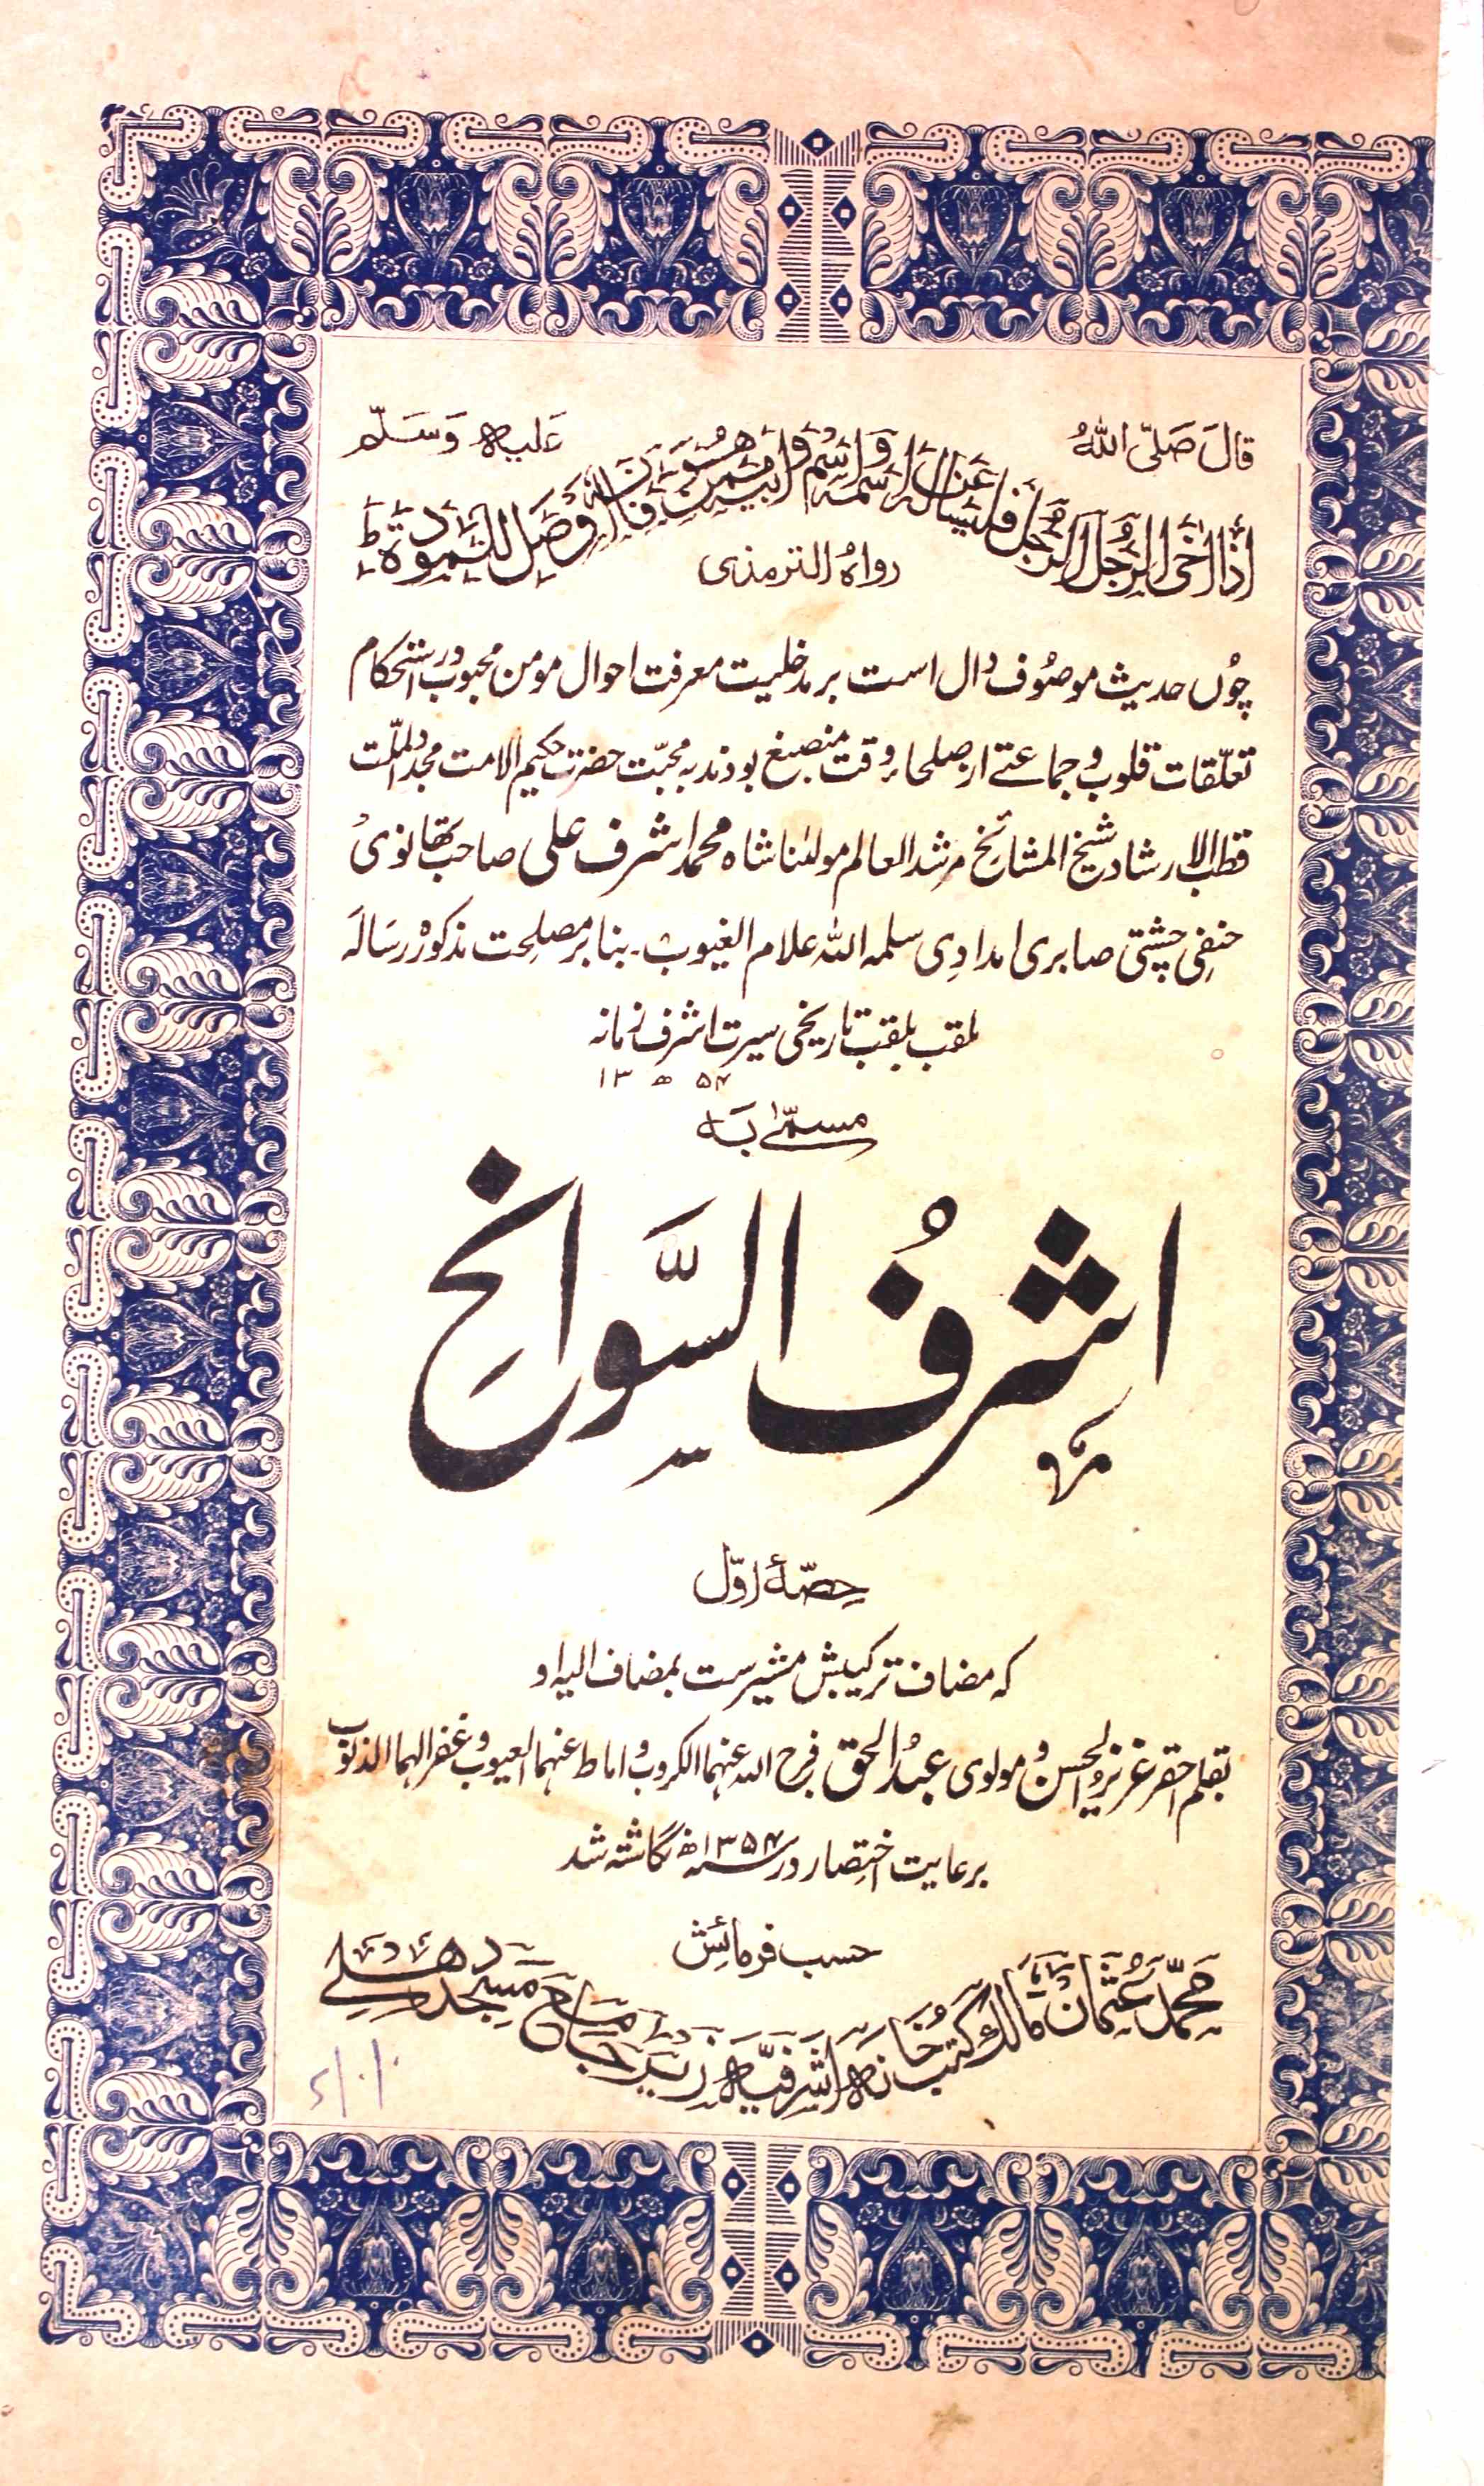 قَالَ صَلَّی اللهُ عَلَیهِ وَسَلَّم
اِذَا اٰخَی الرَّجُلُ الرَّجُلَ فَلْیَسْأَلْهُ عَنِ اسْمِهٖ وَاسْمِ اَبِیْهِ وَمِمَّنْ هُوَ فَاِنَّهٗ اَوْصَلُ لِلْمَوَدَّةِ ط
رواہ الترمذی
چوں حدیث موصوف دال است بر مدخلیت معرفت احوال مومن محبوب در استحکام
تعلّقات قلوب و جماعتے از صلحاء وقت منصبغ بودند بہ محبّت حضرت حکیم الامت مجدد الملّت
قطب الارشاد شیخ المشائخ مرشد العالم مولٰنا شاہ محمد اشرف علی صاحب تھانوی
حنفی چشتی صابری امدادی سلمہ اللہ علام الغیوب۔ بنا بر مصلحت مذکورہ رسالہ
ملقب بلقب تاریخی سیرت اشرف زمانہ
۱۳ ھ ۵۴
مسمّٰی بَہ
اشرفُ السَّوانِح
حِصّۂ اوّل
کہ مضاف ترکیبش مشیرست بمضاف الیہ او
بقلم احقر عزیز الحسن و مولوی عبدُ الحق فرح اللہ عنہما الکروب و اماط عنہما العیوب و غفر لہما الذنوب
برعایت اختصار در ۱۳۵۴ھ نگاشتہ شد
حسب فرمائش
محمّد عثمان مالک کتب خانہ اشرفیہ زیر جامع مسجد دهلی